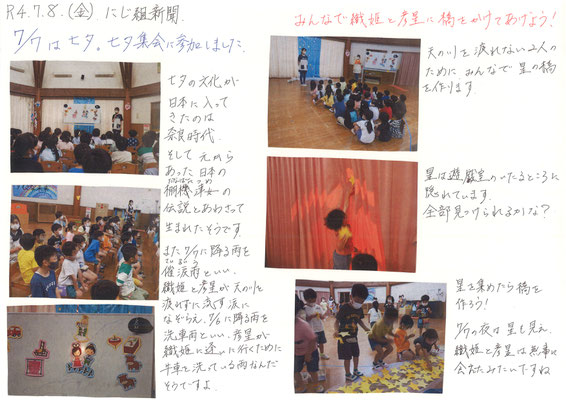 R4.7.8.(金) にじ組新聞.
7/7は七夕。七夕集会に参加しました。
七夕の文化が
日本に入って
きたのは
奈良時代.
そして元から
あった日本の
棚機津女の
伝説とあわさって
生まれたそうです
また7/7に降る雨を
催涙雨といい.
織姫と彦星が天の川を
渡れずに流す涙に
なぞらえ. 7/6に降る雨を
洗車雨といい. 彦星が
織姫に逢いに行くために
牛車を洗っている雨なんだ
そうですよ.
みんなで織姫と彦星に橋をかけてあげよう!
天の川を渡れない2人の
ために みんなで 星の橋
を作ります.
星は遊戯室のいたるところに
隠れています.
全部見つけられるかな?
星を集めたら橋を
作ろう!
7/7の夜は星も見え.
織姫と彦星は無事に
会えたみたいですね